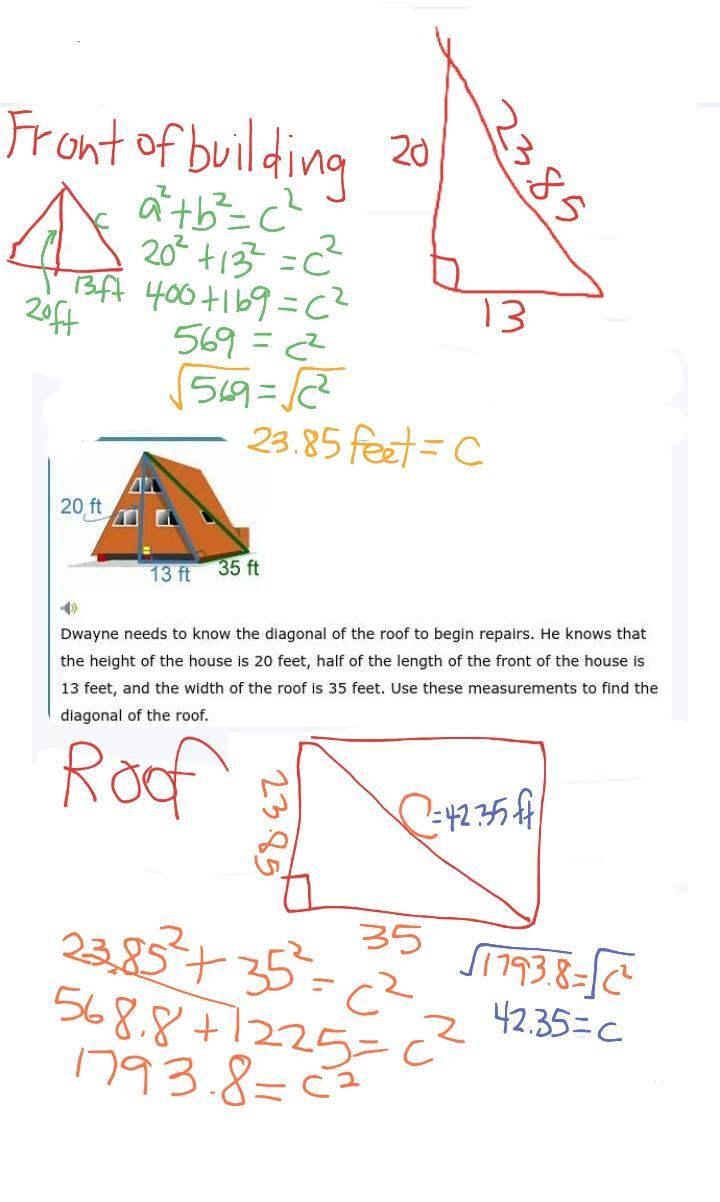 Front of building
20
23.85
13
c
13ft
20ft
a²+b²=c²
20²+13²=c²
400+169=c²
569=c²
√569=√c²
23.85 feet=c
20 ft
13 ft
35 ft
Dwayne needs to know the diagonal of the roof to begin repairs. He knows that
the height of the house is 20 feet, half of the length of the front of the house is
13 feet, and the width of the roof is 35 feet. Use these measurements to find the
diagonal of the roof.
Roof
23.85
C=42.35 ft
35
23.85²+35²=c²
568.8+1225=c²
1793.8=c²
√1793.8=√c²
42.35=c